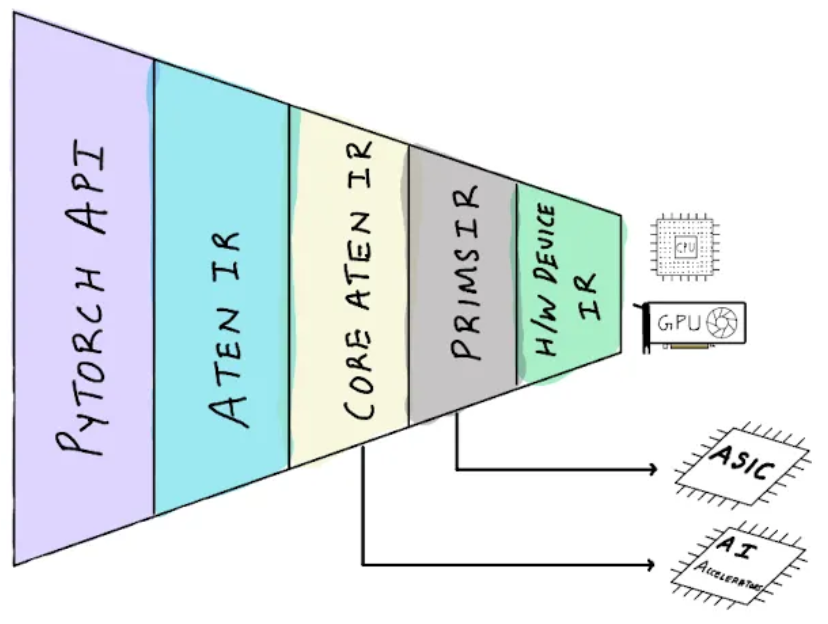 PYTORCH API
ATEN IR
CORE ATEN IR
PRIMS IR
H/W DEVICE
IR
CPU
GPU
ASIC
AI
ACCELERATORS